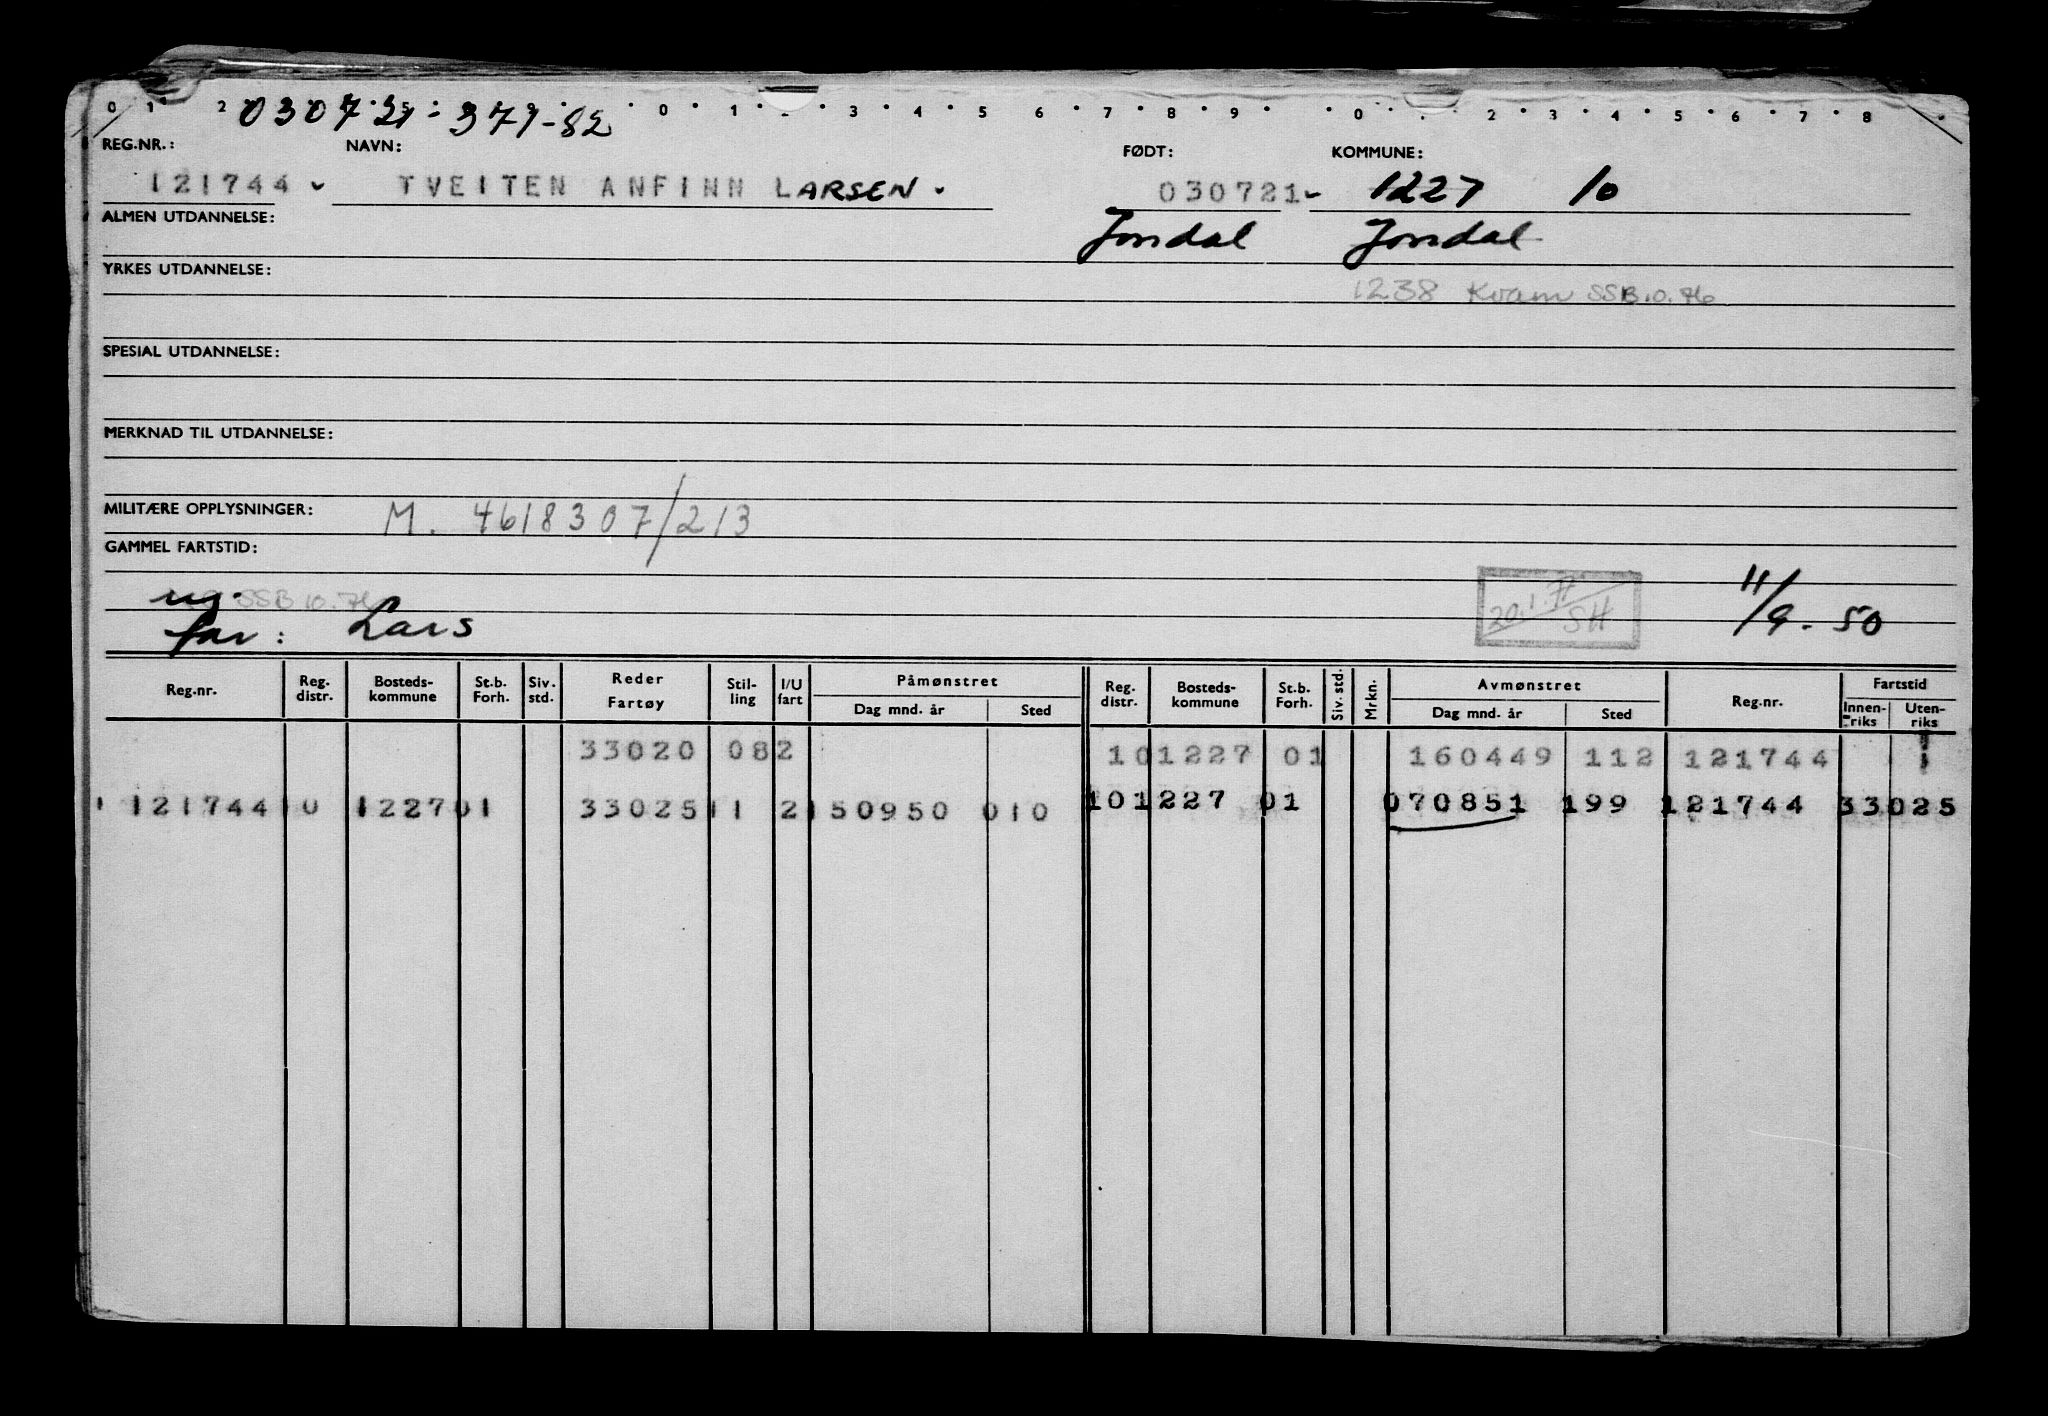 0 1 2 0 1 3 4 5 6 7 8 9 0 2 3 4 5 6 7 8
030721-379-82
REG.NR.: NAVN: FØDT: KOMMUNE:
121744 TVEITEN ANFINN LARSEN. 030721 1227 10
ALMEN UTDANNELSE: Jondal Jondal
YRKES UTDANNELSE:
1238 Kvam SSB 10.76
SPESIAL UTDANNELSE:
MERKNAD TIL UTDANNELSE:
MILITÆRE OPPLYSNINGER: M. 4618307/213
GAMMEL FARTSTID:
ug. SSB 10.76 20.1.77 SH 11/9-50
far: Lars
Reg.nr. Reg. distr. Bosteds-kommune St.b. Forh. Siv. std. Reder Fartøy Stil-ling I/U fart Påmønstret Dag mnd. år Sted Reg. distr. Bosteds-kommune St.b. Forh. Siv. std. Mrkn. Avmønstret Dag mnd. år Sted Reg.nr. Fartstid Innen-riks Uten-riks
33020 082 101227 01 160449 112 121744 1
1 121744 10 122701 33025 11 2150950 010 101227 01 070851 199 121744 33025